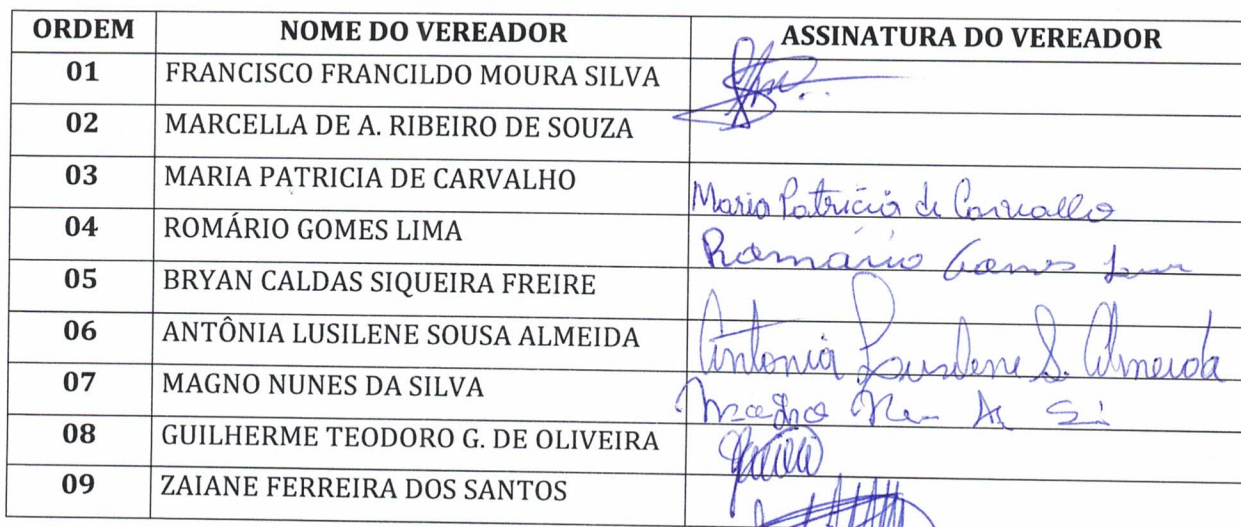 ORDEM NOME DO VEREADOR ASSINATURA DO VEREADOR
01 FRANCISCO FRANCILDO MOURA SILVA
02 MARCELLA DE A. RIBEIRO DE SOUZA
03 MARIA PATRICIA DE CARVALHO Maria Patrícia de Carvalho
04 ROMÁRIO GOMES LIMA Romário Gomes Lima
05 BRYAN CALDAS SIQUEIRA FREIRE
06 ANTÔNIA LUSILENE SOUSA ALMEIDA Antonia Lusilene S. Almeida
07 MAGNO NUNES DA SILVA Magno
08 GUILHERME TEODORO G. DE OLIVEIRA
09 ZAIANE FERREIRA DOS SANTOS